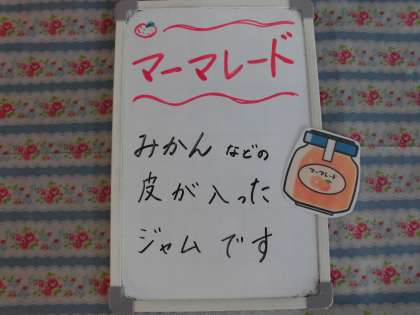 マーマレード
みかんなどの
皮が入った
ジャムです
マーマレード